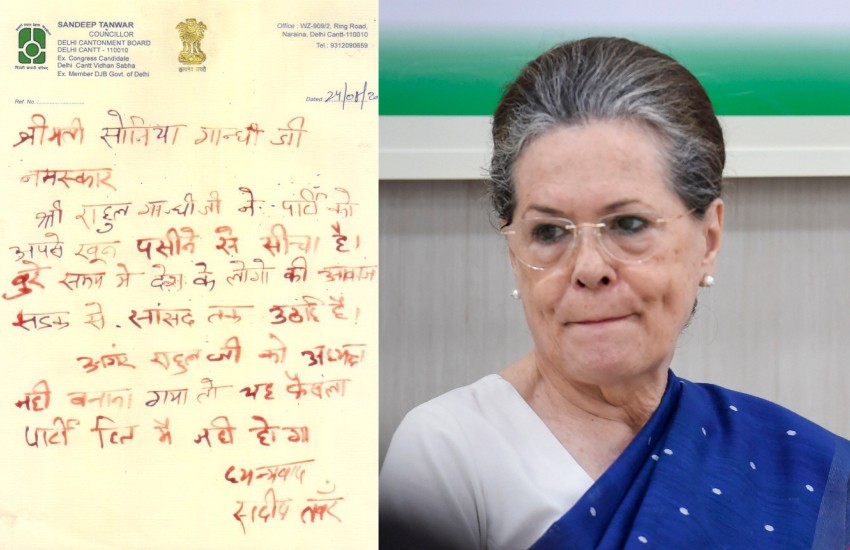 SANDEEP TANWAR
COUNCILLOR
DELHI CANTONMENT BOARD
DELHI CANTT - 110010
Ex. Congress Candidate
Delhi Cantt Vidhan Sabha
Ex. Member DJB Govt. of Delhi
Office : WZ-909/2, Ring Road,
Naraina, Delhi Cantt-110010
Tel.: 9312090659
Ref. No.
Dated 24/08/20
श्रीमती सोनिया गान्धी जी
नमस्कार
श्री राहुल गान्धी जी ने पार्टि को
अपने खून पसीने से सीचा है।
बुरे समय मे देश के लोगो की आवाज
सडक से सांसद तक उठाई है।
अगर राहुल जी को अध्यक्ष
नही बनाया गया तो यह फैसला
पार्टी हित मै नही होगा
धन्यवाद
संदीप तंवर